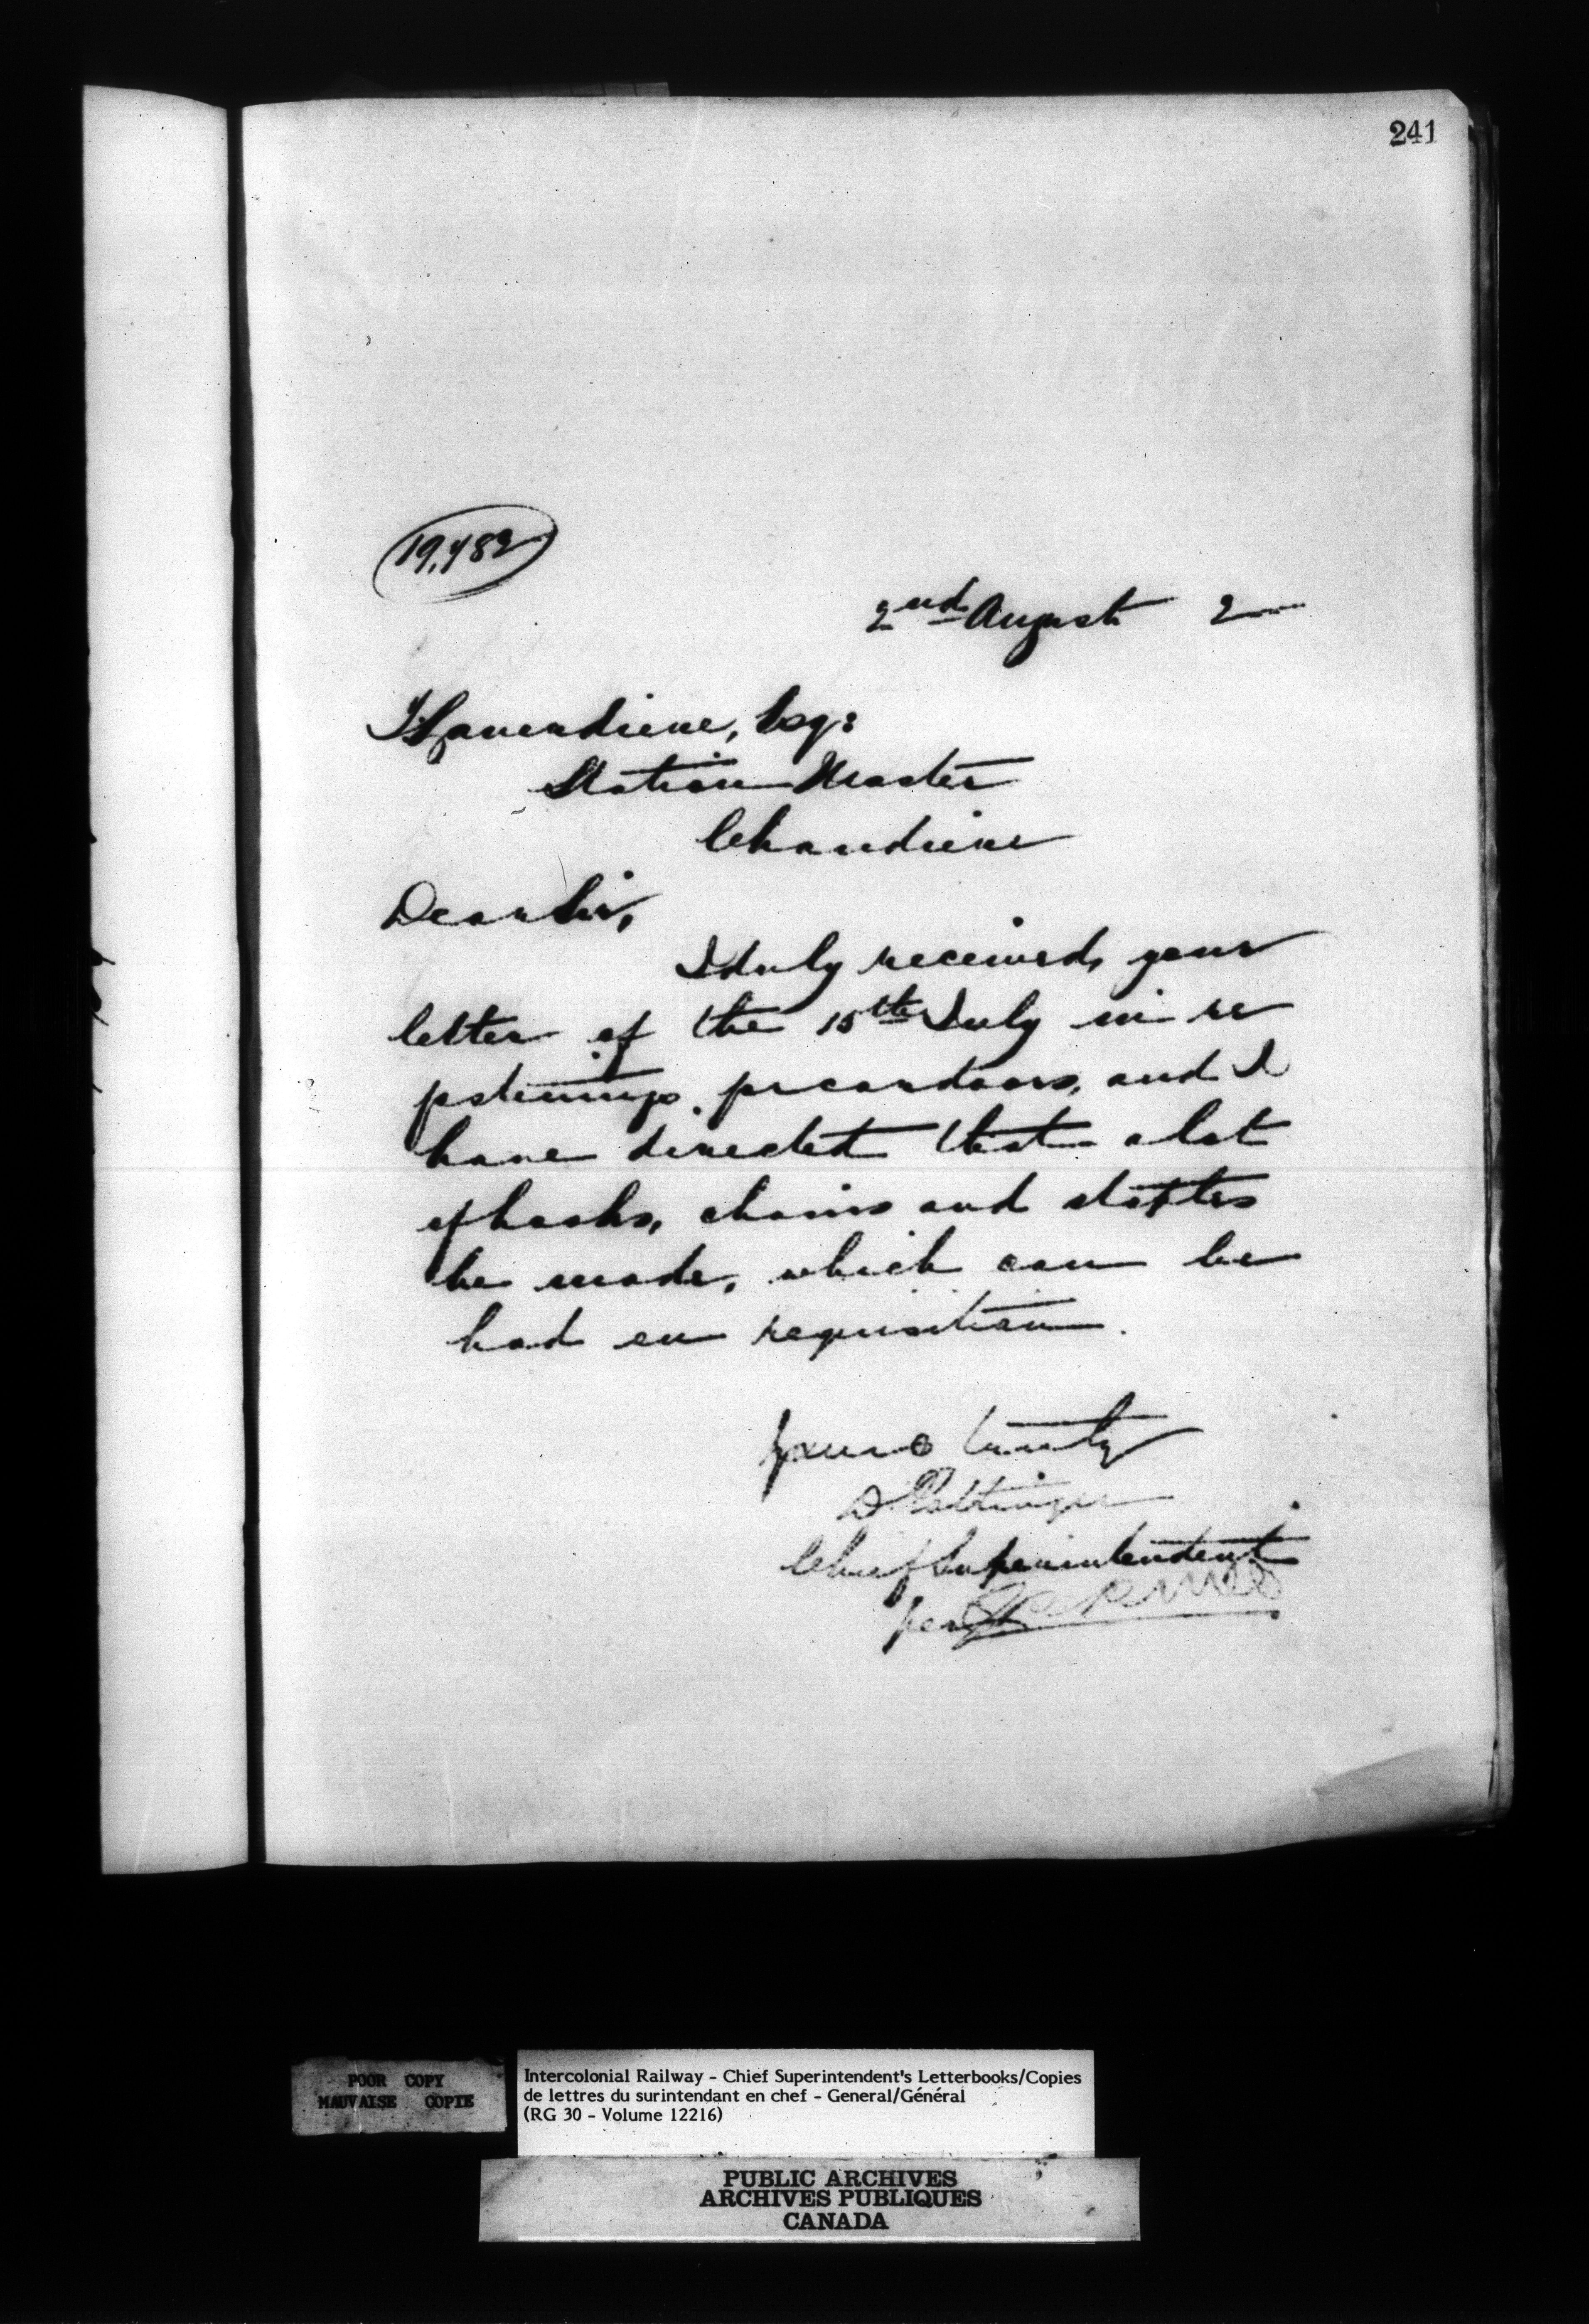 241
19,482
2nd August 2
Laverdiere, Esq:
Station Master
Chaudiere
Dear Sir,
I duly received your
letter of the 15th July in re
car doors, and I
have directed that a lot
of hooks, chains and staples
be made, which can be
had on requisition.
Yours truly
D Pottinger
Chief Superintendent
per
POOR COPY
MAUVAISE COPIE
Intercolonial Railway - Chief Superintendent's Letterbooks/Copies
de lettres du surintendant en chef - General/Général
(RG 30 - Volume 12216)
PUBLIC ARCHIVES
ARCHIVES PUBLIQUES
CANADA